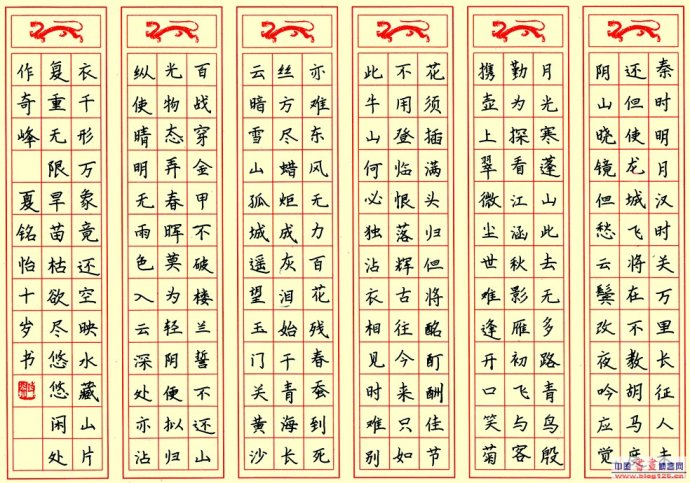 秦时明月汉时关万里长征人未
还但使龙城飞将在不教胡马度
阴山晓镜但愁云鬓改夜吟应觉
月光寒蓬山此去无多路青鸟殷
勤为探看江涵秋影雁初飞与客
携壶上翠微尘世难逢开口笑菊
花须插满头归但将酩酊酬佳节
不用登临恨落辉古往今来只如
此牛山何必独沾衣相见时难别
亦难东风无力百花残春蚕到死
丝方尽蜡炬成灰泪始干青海长
云暗雪山孤城遥望玉门关黄沙
百战穿金甲不破楼兰誓不还山
光物态弄春晖莫为轻阴便拟归
纵使晴明无雨色入云深处亦沾
衣千形万象竟还空映水藏山片
复重无限旱苗枯欲尽悠悠闲处
作奇峰 夏铭怡十岁书
中国书画博客网